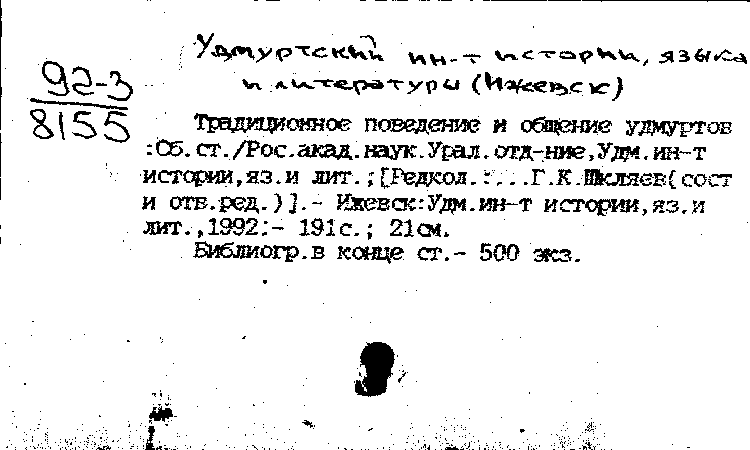 Удмуртский ин-т истории, языка
и литературы (Ижевск)
92-3
8155
Традиционное поведение и общение удмуртов
:Сб.ст./Рос.акад.наук.Урал.отд-ние,Удм.ин-т
истории,яз.и лит.;[Редкол.:...Г.К.Шкляев(сост
и отв.ред.)].- Ижевск:Удм.ин-т истории,яз.и
лит.,1992.- 191с.; 21см.
Библиогр.в конце ст.- 500 экз.